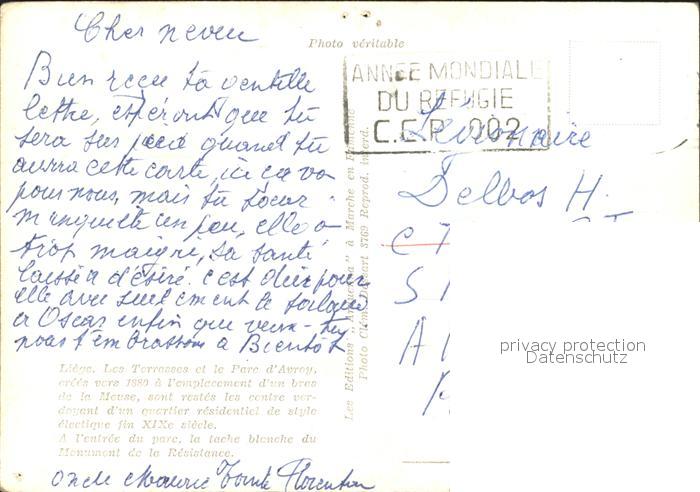 Cher neveu
Photo véritable
Bien reçu ta gentille
lettre, espéront que tu
sera sur pied quand tu
aurra cette carte, ici ça va
pour nous, mais ta soeur
m'inquiette un peu, elle a
trop maigri, sa santé
laisse a désiré. c'est dur pour
elle avec seulement le
a Oscar enfin que veux-tu
nous t'embrassons a Bientôt
Liége. Les Terrasses et le Parc d'Avroy,
créés vers 1880 à l'emplacement d'un bras
de la Meuse, sont restés les centre ver-
doyant d'un quartier résidentiel de style
éclectique fin XIXe siècle.
A l'entrée du parc, la tache blanche du
Monument de la Résistance.
Oncle Maurice Tante Florentine
Les Editions à Marche en Famenne
Photo 8769 Reprod. interd.
ANNÉE MONDIALE
DU REFUGIE
C.E.P. 002
Légionnaire
Delbos H.
privacy protection
Datenschutz